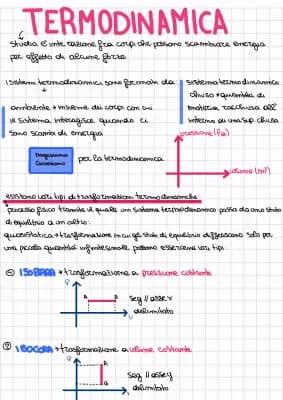 TERMODINAMICA
Studia l'interazione fra corpi che possono scambiare energia
per effetto di alcune forze
I sistemi termodinamici sono formati da
sistema termodinamico
chiuso → quantità di
materia racchiusa all'
interno di una sup. chiusa
ambiente → insieme di corpi con cui
il sistema interagisce quando ci
sono scambi di energia
pressione (Pa)
volume (m³)
Diagramma
Cartesiano
per la termodinamica
esistono vari tipi di trasformazioni termodinamiche:
processo fisico tramite il quale un sistema termodinamico passa da uno stato
di equilibrio a un altro
quasistatica → trasformazione in cui gli stati di equilibrio differiscono solo per
una piccola quantità infinitesimale possono essercene vari tipi:
① ISOBARA → trasformazione a pressione costante
P
A B
V
seg // asse x
delimitato
② ISOCORA → trasformazione a volume costante
P
A
B
V
seg // asse y
delimitato